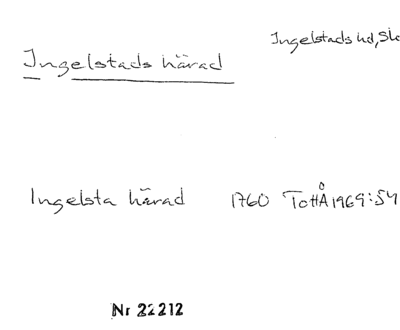 Ingelstads hd, Sk
Ingelstads härad
Ingelsta härad 1760 TottÅ 1969:54
Nr 22212